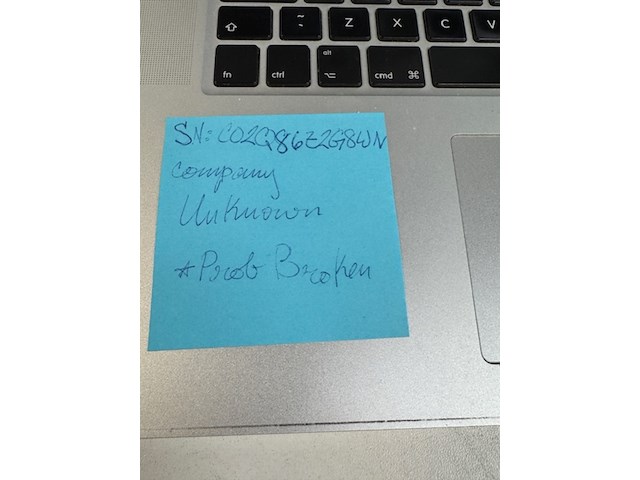 ~ Z X C V
` 
alt
fn ctrl ⌥ cmd ⌘
SN: C02Q86Z2G8WN
Company
Unknown
*Prob Broken